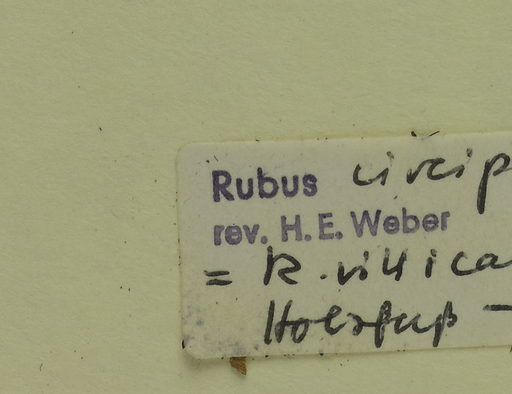 Rubus circip
rev. H. E. Weber
= R. villica
Holzfuß -